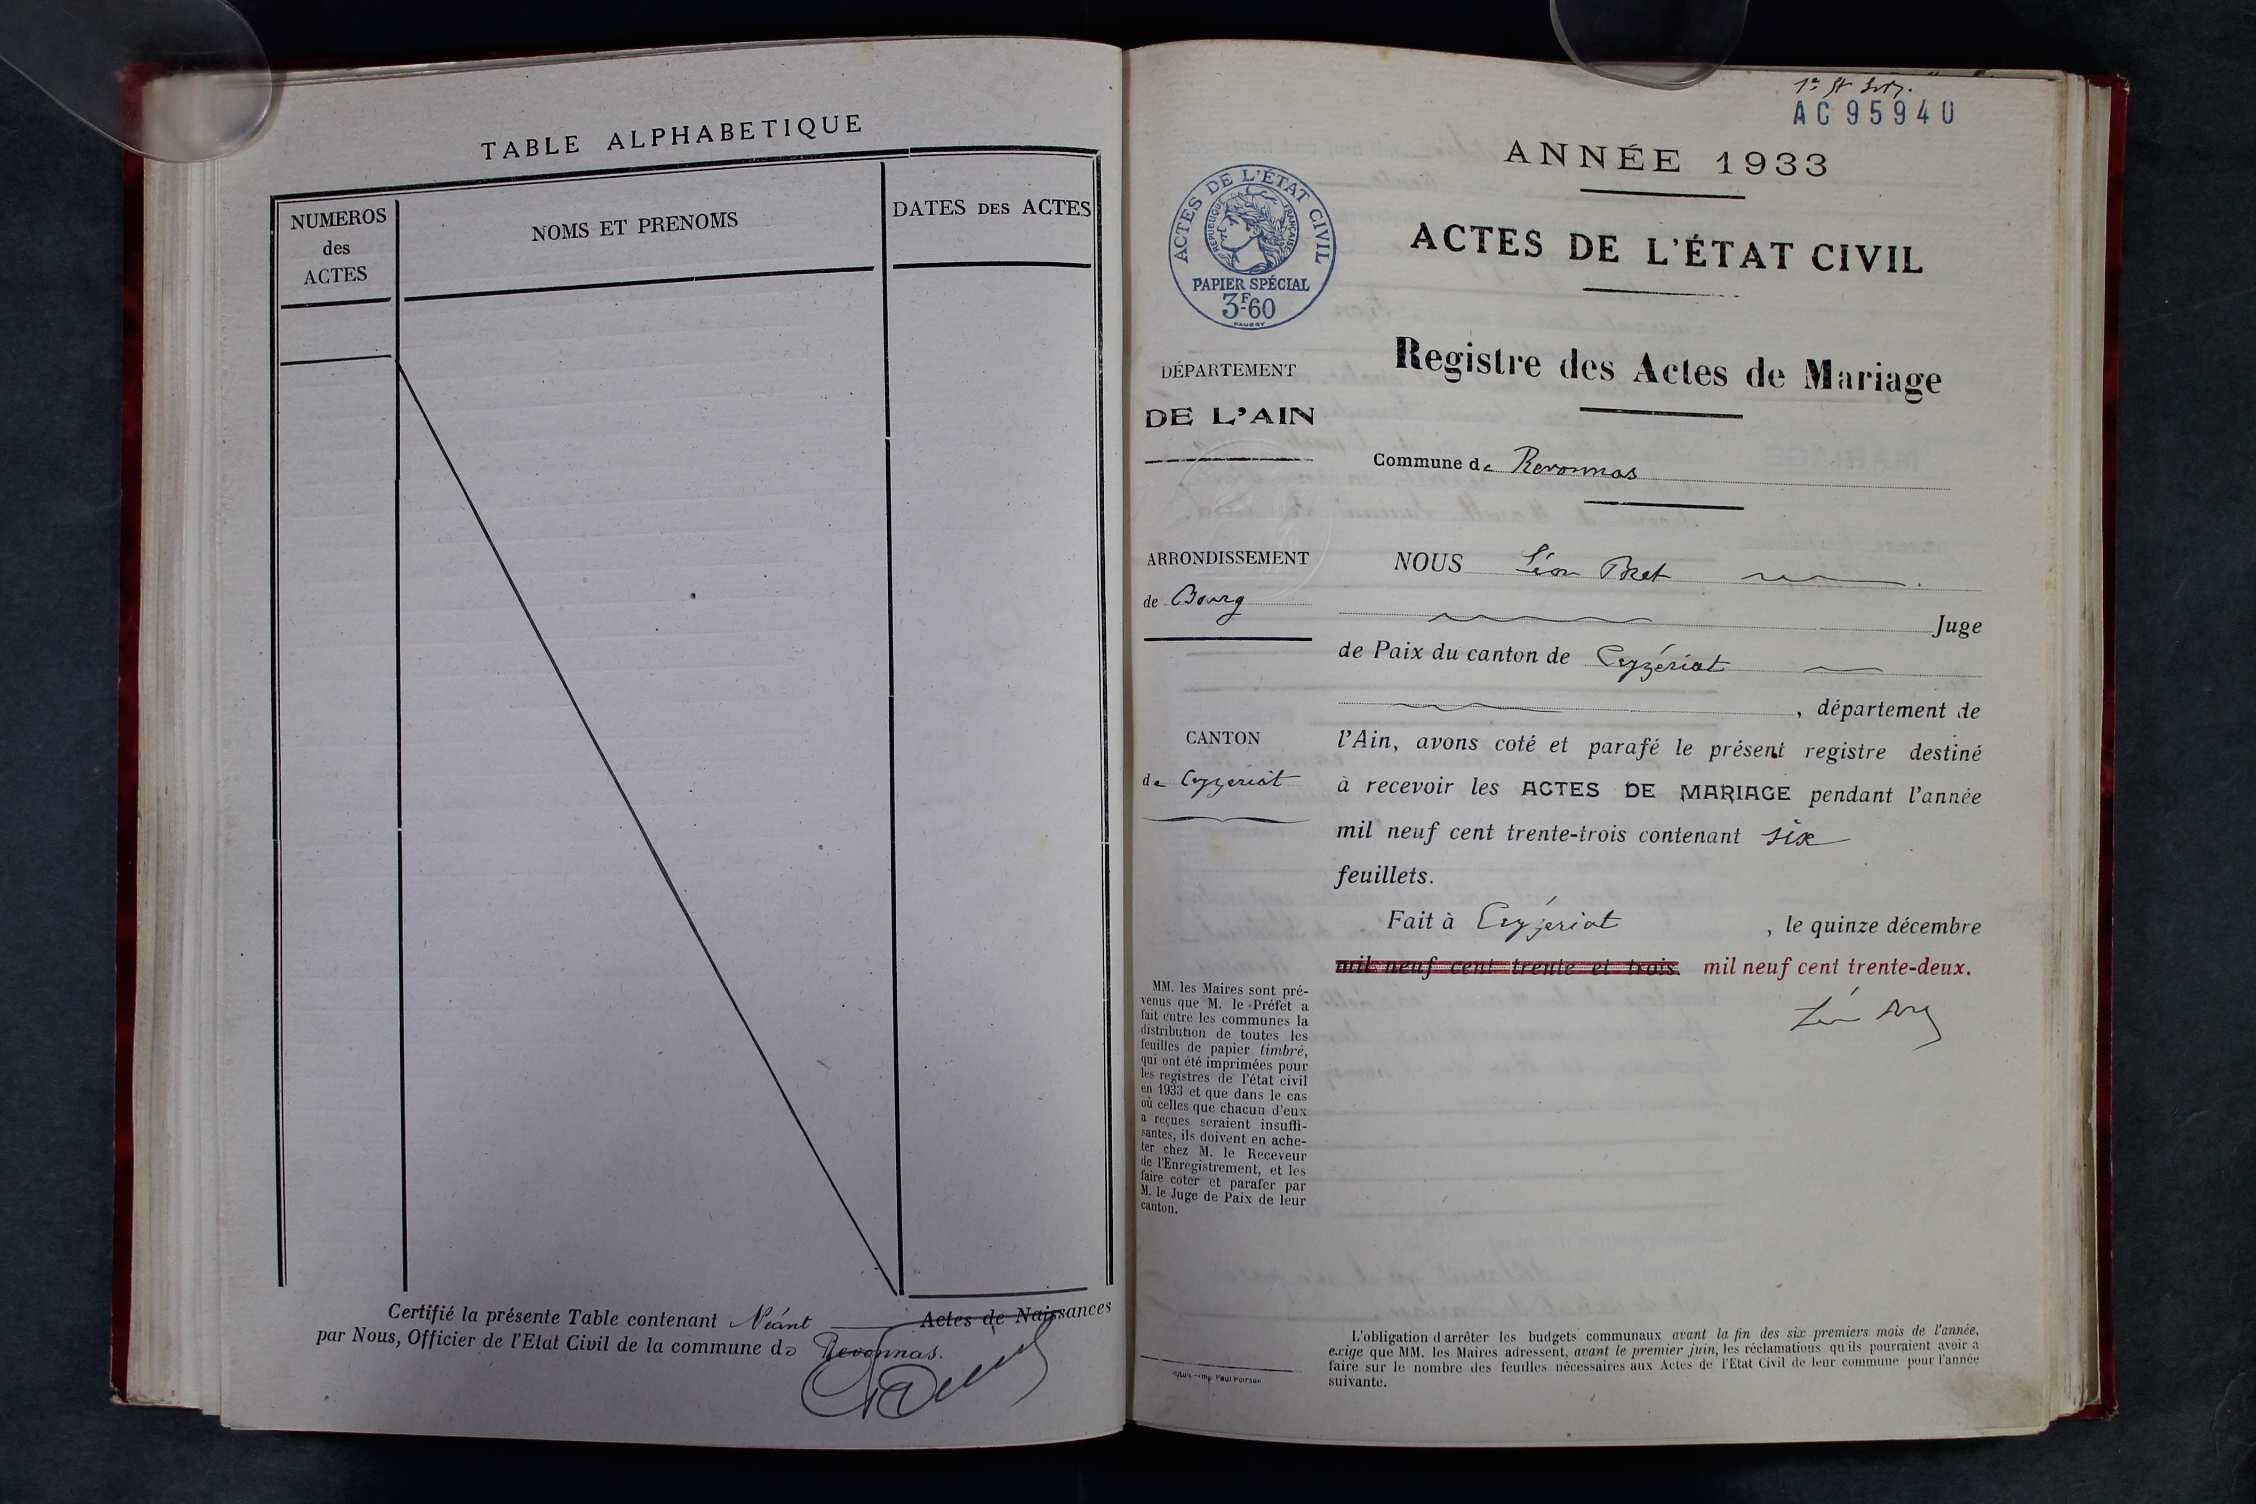 TABLE ALPHABETIQUE
NUMEROS
des
ACTES
NOMS ET PRENOMS
DATES DES ACTES
Certifié la présente Table contenant Néant Actes de Naissances
par Nous, Officier de l'Etat Civil de la commune de Revonnas.
AC 95940
ANNÉE 1933
ACTES DE L'ÉTAT CIVIL
RÉPUBLIQUE FRANÇAISE
PAPIER SPÉCIAL
3F-60
ACTES DE L'ÉTAT CIVIL
Registre des Actes de Mariage
DÉPARTEMENT
DE L'AIN
Commune de Revonnas
ARRONDISSEMENT
de Bourg
CANTON
de Ceyzeriat
NOUS Léon
Juge
de Paix du canton de Ceyzériat
, département de
l'Ain, avons coté et parafé le présent registre destiné
à recevoir les ACTES DE MARIAGE pendant l'année
mil neuf cent trente-trois contenant six
feuillets.
Fait à Ceyzeriat , le quinze décembre
mil neuf cent trente et trois. mil neuf cent trente-deux.
MM. les Maires sont pré-
venus que M. le Préfet a
fait entre les communes la
distribution de toutes les
feuilles de papier timbré,
qui ont été imprimées pour
les registres de l'état civil
en 1933 et que dans le cas
où celles que chacun d'eux
a reçues seraient insuffi-
santes, ils doivent en ache-
ter chez M. le Receveur
de l'Enregistrement, et les
faire coter et parafer par
M. le Juge de Paix de leur
canton.
Imp. Paul
L'obligation d arrêter les budgets communaux avant la fin des six premiers mois de l'année,
exige que MM. les Maires adressent, avant le premier juin, les réclamations qu'ils pourraient avoir à
faire sur le nombre des feuilles nécessaires aux Actes de l'Etat Civil de leur commune pour l'année
suivante.